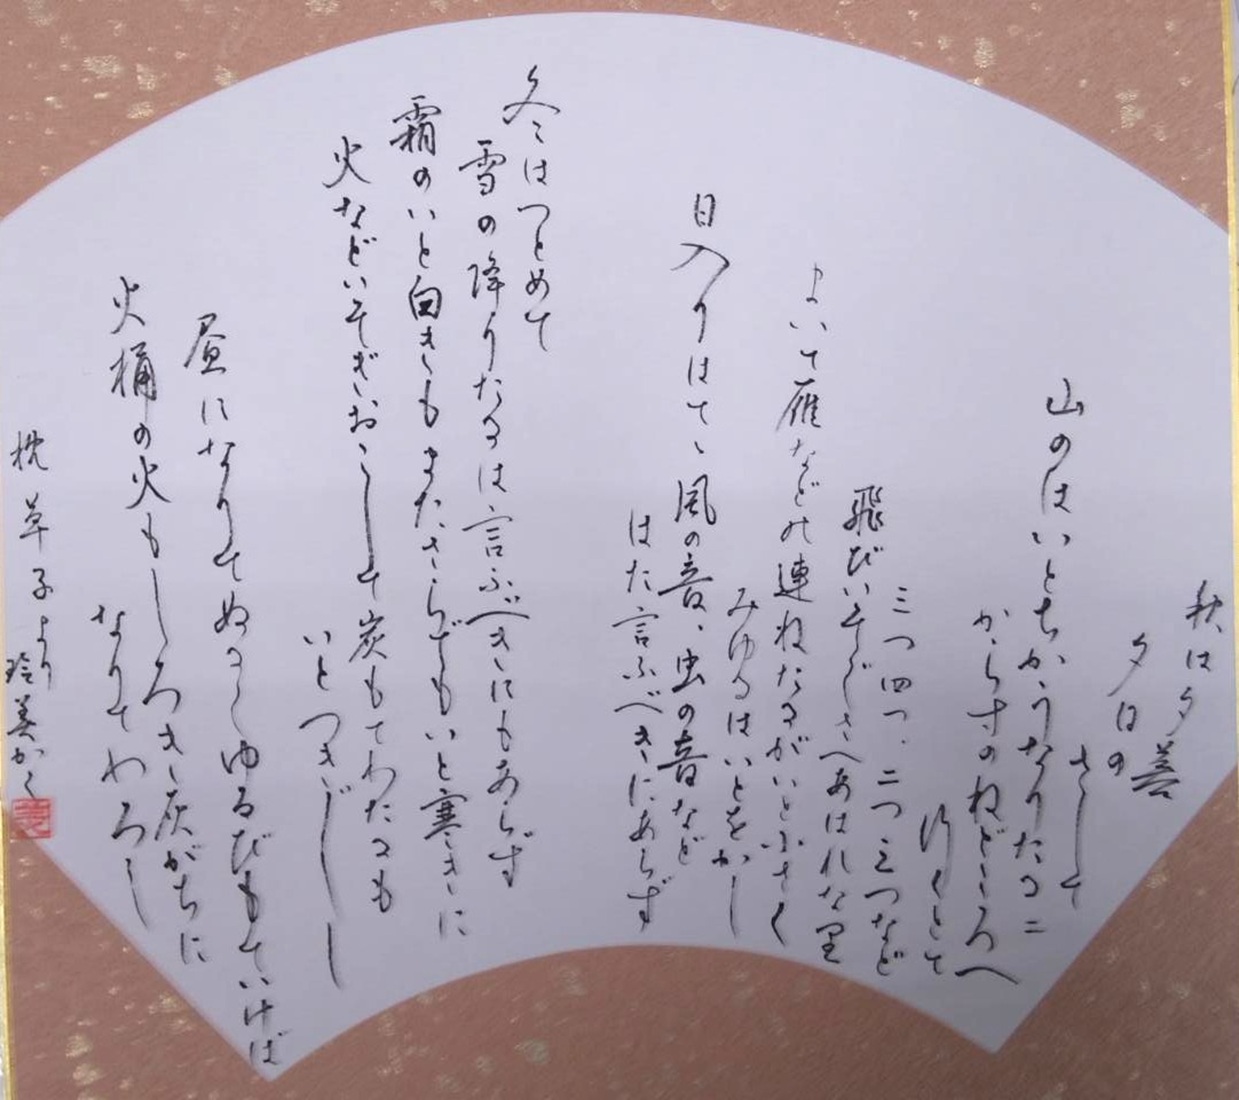 秋は夕暮
夕日の
さして
山のはいとちかうなりたるニ
からすのねどころへ
行くとて
三つ四つ、二つ三つなど
飛びいそぐさへあはれな里
まいて雁などの連ねたるがいと小さく
みゆるはいとをかし
日入りはてゝ風の音、虫の音など
はた言ふべきにあらず
冬はつとめて
雪の降りたるは言ふべきにもあらず
霜のいと白きもまたさらでもいと寒きに
火などいそぎおこして炭もてわたるも
いとつきづし
昼になりてぬるくゆるびもていけば
火桶の火もしろき灰がちに
なりてわろし
枕草子より
玲美かく